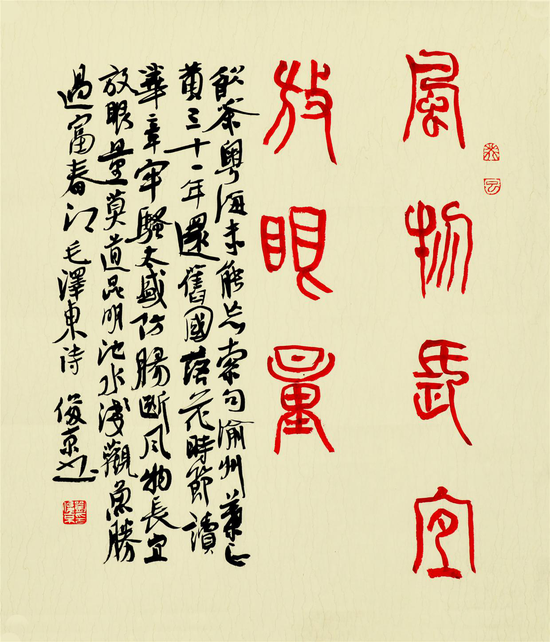 風物長宜
放眼量
飲茶粵海未能忘索句渝州葉正
黃三十一年還舊國落花時節讀
華章牢騷太盛防腸斷風物長宜
放眼量莫道昆明池水淺觀魚勝
過富春江毛澤東詩 俊京书